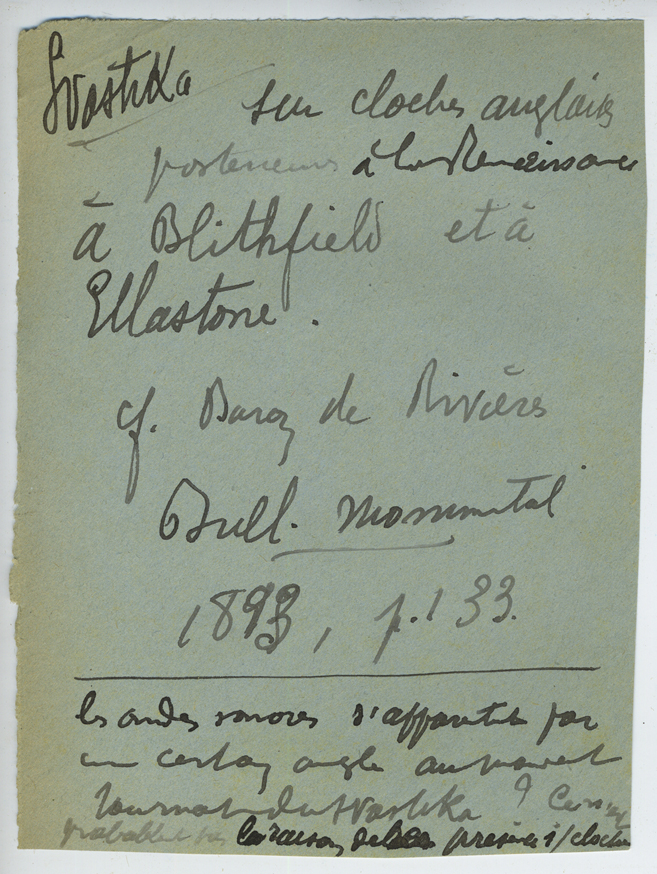 Svastika
sur cloches anglaises
posterieures à la Renaissance
à Blithfield et à
Ellastone.
cf. Baron de Rivières
Bull. Monumental
1893, p. 133.
les ondes sonores s'apparentent par
un certain angle au mouvement
tournant du svastika ?
probablement la raison de presence s/cloche